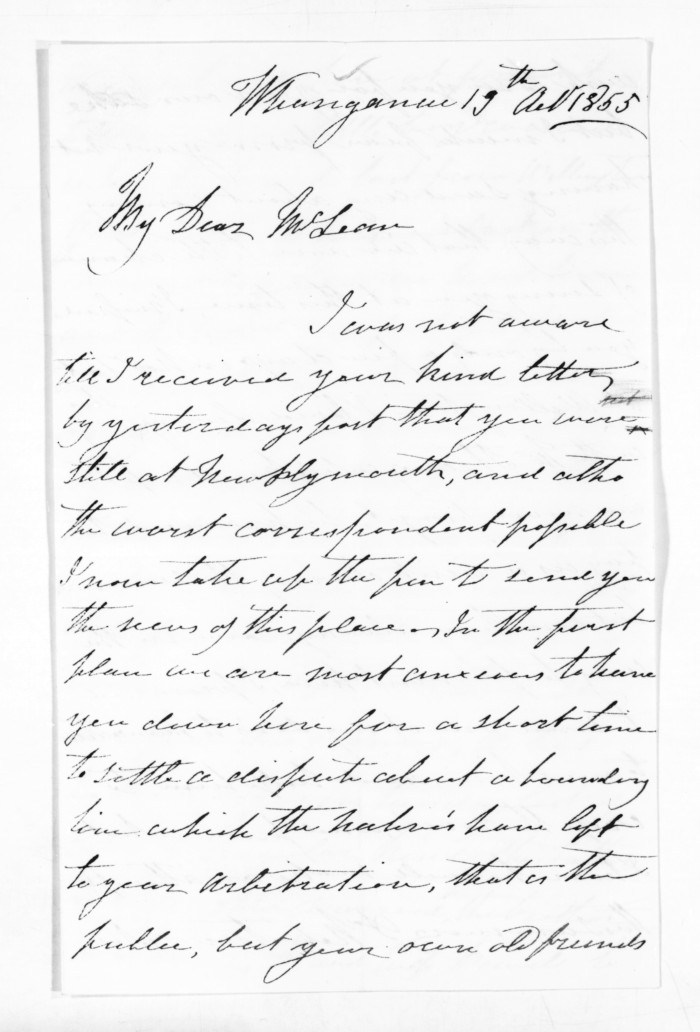 Whanganui 19th Octr 1855
My Dear McLean
I was not aware
till I received your kind letter
by yesterdays post that you were
still at New Plymouth, and altho
the worst correspondent possible
I now take up the pen to send you
the news of this place. In the first
place we are most anxious to have
you down here for a short time
to settle a dispute about a boundary
line which the natives have left
to your arbitration, that is the
public, but your own old friends